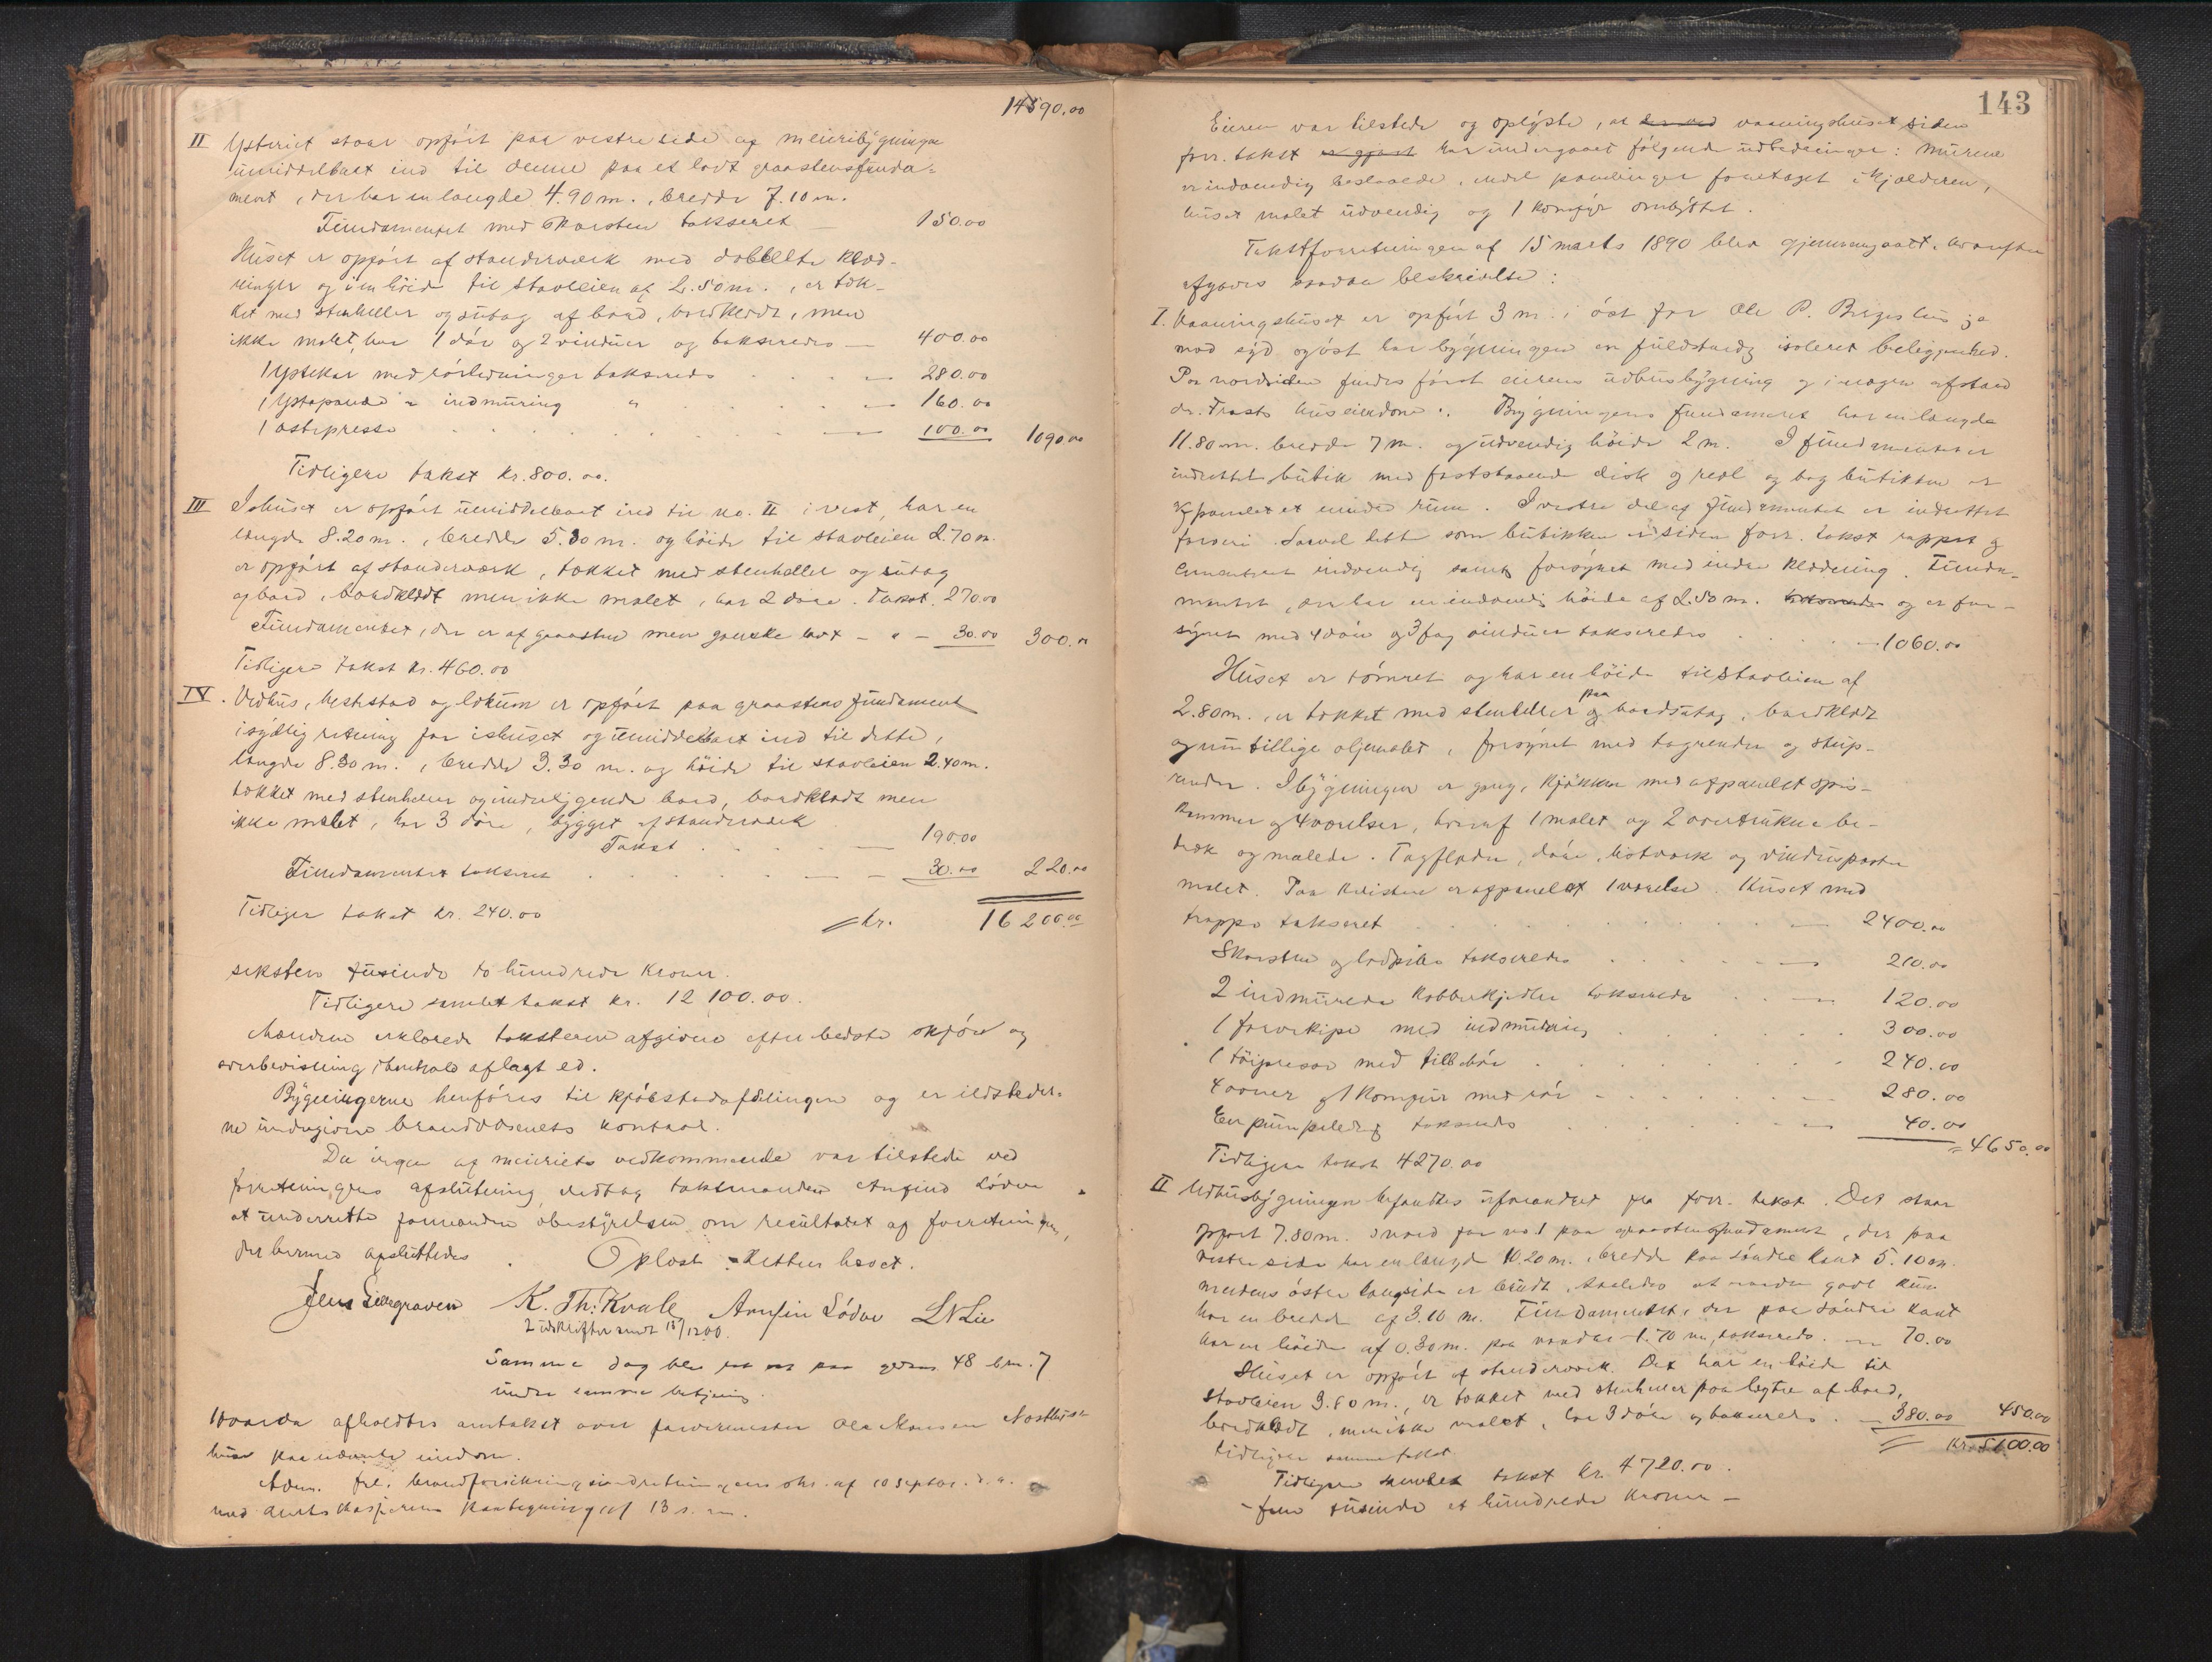 14590.00
II Ysteriet staar opført paa vestre side af meieribygningen
umiddelbart ind til denne paa et lavt graastensfunda-
ment, der har en længde 4.90 m., bredde 7.10 m.
Fundamentet med skorsten takseret — 150.00
Huset er opført af standerværk med dobbelte klæd-
ninger og i en høide til stavleien af 2.50 m., er tæk-
ket med stenheller og sutag af bord, bordklædt, men
ikke malet, har 1 dør og 2 vinduer og takseredes — 400.00
1 ystekar med rørledninger takseredes . . . — 280.00
1 ystepande " indmuring " . . . — 160.00
1 ostepresse . . . — 100.00 1090.00
Tidligere takst kr. 800.00.
III Ishuset er opført umiddelbart ind til no. II i vest, har en
længde 8.20 m., bredde 5.30 m. og høide til stavleien 2.70 m.
er opført af standerværk, tækket med stenheller og sutag
af bord, bordklædt men ikke malet, har 2 døre. Takst. 270.00
Fundamentet, der er af graasten men ganske lavt — " — 30.00 300.00
Tidligere takst kr. 460.00
IV. Vedhus, hestestad og lokum er opført paa graastens fundament
i sydlig retning for ishuset og umiddelbart ind til dette,
længde 8.30 m., bredde 3.30 m. og høide til stavleien 2.40 m.
tækket med stenheller og underliggende bord, bordklædt men
ikke malet, har 3 døre, bygget af standerværk
Takst . . . — 190.00
Fundamentet takseret . . . — 30.00 220.00
Tidligere takst kr. 240.00 = kr. 16200.00
seksten tusinde to hundrede kroner.
Tidligere samlet takst kr. 12100.00.
Mændene erklærede taksterne afgivne efter bedste skjøn og
overbevisning i henhold aflagt ed.
Bygningerne henføres til kjøbstadafdelingen og er ildsteder-
ne undergivne brandvæsenets kontrol.
Da ingen af meieriets vedkommende var tilstede ved
forretningens afslutning, vedtog takstmanden Arnfind Lødøe
at underrette formanden i bestyrelsen om resultatet af forretningen,
der hermed afsluttedes. Oplæst. Retten hævet.
Jens Leergraven K. Th: Kvale Arnfin Lódøe L N Lie
2 udskrifter sendt 15/12 00.
Samme dag blev ret sat paa gaarden 48 brn. 7
under samme betjening.
Hvorda afholdtes omtakst over farvermester Ole Monsen Nosthus
hus paa nævnte eiendom.
Adm. frl. brandforsikringsindretningens skr. af 10 septbr. d. a.
med amtskasserens paategning af 13 s. m.
143
Eieren var tilstede og oplyste, at vaaningshuset siden
forr. takst har undergaaet følgende udbedringer: Murene
er indvendig beslaaede, endel panelinger foretaget i kjælderen,
huset malet udvendig og 1 komfyr ombyttet.
Takstforretningen af 15 marts 1890 blev gjennemgaaet, hvorefter
afgaves saadan beskrivelse:
I. Vaaningshuset er opført 3 m. i øst for Ole P. Bergs hus ; a
mod syd og øst har bygningen en fuldstændig isoleret beliggenhed.
Paa nordsiden findes først eierens udhusbygning og i nogen afstand
dr. Trosts huseiendom. Bygningens fundament har en længde
11.80 m. bredde 7 m. og udvendig høide 2 m. I fundamentet er
indrettet butik med faststaaende disk og reol og bag butikken er
afpanelet et mindre rum. I vestre del af fundamentet er indrettet
farveri. Saavel dette som butikken er siden forr. takst rappet og
cementeret indvendig samt forsynet med indre klædning. Funda-
mentet, der har en indvendig høide af 2.50 m. og er for-
synet med 4 døre og 3 fag vinduer takseredes . . . — 1060.00
Huset er tømret og har en høide til stavleien af
2.80 m., er tækket med stenheller paa bordsutag, bordklædt
og rundtillige oljemalet, forsynet med tagrender og stup-
render. I bygningen er gang, kjøkken med afpanelet spis-
kammer og 4 værelser, hvoraf 1 malet og 2 overtrukne be-
træk og malede. Tagflader, døre, listværk og vinduesposter
malet. Paa kvisten er afpanelet 1 værelse. Huset med
trappe takseret . . . — 2400.00
Skorsten og ladpibe takseredes . . . — 210.00
2 indmurede kobberkjedler takseredes . . — 120.00
1 farvekipe med indmuring . . . 300.00
1 tøipresse med tilbehør . . . 240.00
4 ovner og 1 komfyr med rør . . . 280.00
En pumpeledning takseredes . . . — 40.00
= 4650.00
Tidligere takst 4270.00
II Udhusbygningen befandtes uforandret fra forr. takst. Det staar
opført 7.80 m. i nord for no. 1 paa graastensfundament, der paa
vestre side har en længde 10.20 m., bredde paa søndre kant 5.10 m.
medens østre langside er brudt, saaledes at nordre gavl kun
har en bredde af 3.10 m. Fundamentet, der paa søndre kant
har en høide af 0.30 m. paa nordre 1.70 m., takseredes. — 70.00
Huset er opført af standerværk. Det har en høide til
stavleien 3.60 m., er tækket med stenheller paa lægter af bord,
bordklædt, men ikke malet, har 3 døre og takseredes. — 380.00 450.00
Tidligere samme takst = Kr. 5100.00
Tidligere samlet takst kr. 4720.00.
- fem tusinde et hundrede kroner -